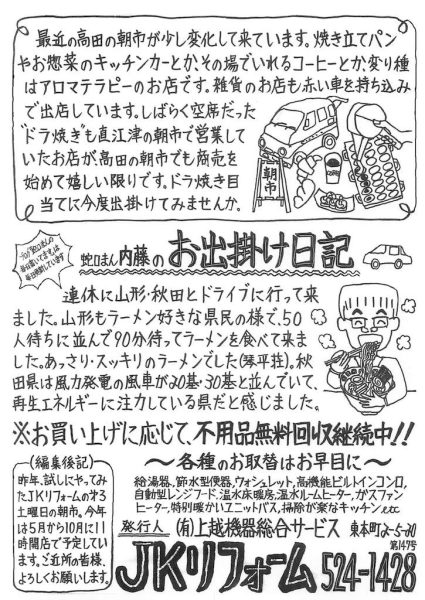 最近の高田の朝市が少し変化して来ています。焼き立てパン
やお惣菜のキッチンカーとか、その場でいれるコーヒーとか、変り種
はアロマテラピーのお店です。雑貨のお店も赤い車を持ち込み
で出店しています。しばらく空席だった
"ドラ焼き"も直江津の朝市で営業して
いたお店が、高田の朝市でも商売を
始めて嬉しい限りです。ドラ焼き目
当てに今度出掛けてみませんか。
朝市
蛇口まん内藤のお出掛け日記
連休に山形・秋田とドライブに行って来
ました。山形もラーメン好きな県民の様で、50
人待ちに並んで90分待ってラーメンを食べて来ま
した。あっさり・スッキリのラーメンでした(琴平荘)。秋
田県は風力発電の風車が20基・30基と並んでいて、
再生エネルギーに注力している県だと感じました。
※お買い上げに応じて、不用品無料回収継続中!!
〜各種のお取替はお早目に〜
給湯器、節水型便器、ウォシュレット、高機能ビルトインコンロ、
自動型レンジフード、温水床暖房、温水ルームヒーター、ガスファン
ヒーター、特別暖かいユニットバス、掃除が楽なキッチンetc
(編集後記)
昨年、試しにやってみ
たJKリフォームの
土曜日の朝市。今年
は5月から10月に11
時開店で予定してい
ます。ご近所の皆様、
よろしくお願いします。
発行人 (有)上越機器総合サービス 東本町2-5-30
第147号
JKリフォーム 524-1428